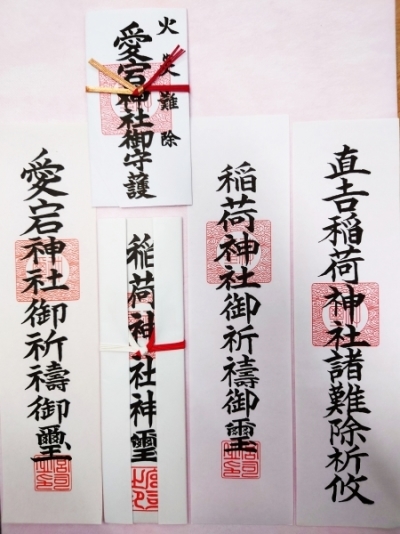 直吉稲荷神社諸難除祈攸
稲荷神社御祈禱御璽
火災難除
愛宕神社御守護
稲荷神社神璽
愛宕神社御祈禱御璽